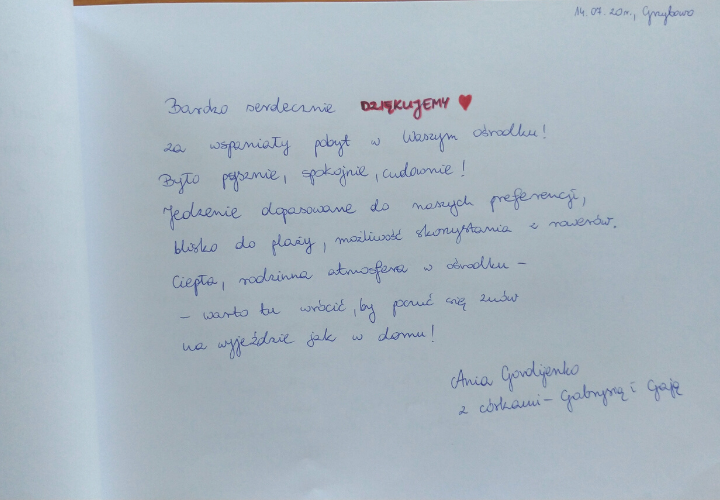 14.07.20r., Grzybowo
Bardzo serdecznie DZIĘKUJEMY ♥
za wspaniały pobyt w Waszym ośrodku!
Było pysznie, spokojnie, cudownie!
Jedzenie dopasowane do naszych preferencji,
blisko do plaży, możliwość skorzystania z rowerów.
Ciepła, rodzinna atmosfera w ośrodku –
– warto tu wrócić, by poczuć się znów
na wyjeździe jak w domu!
Ania Gordijenko
z córkami – Gabrysią i Gają